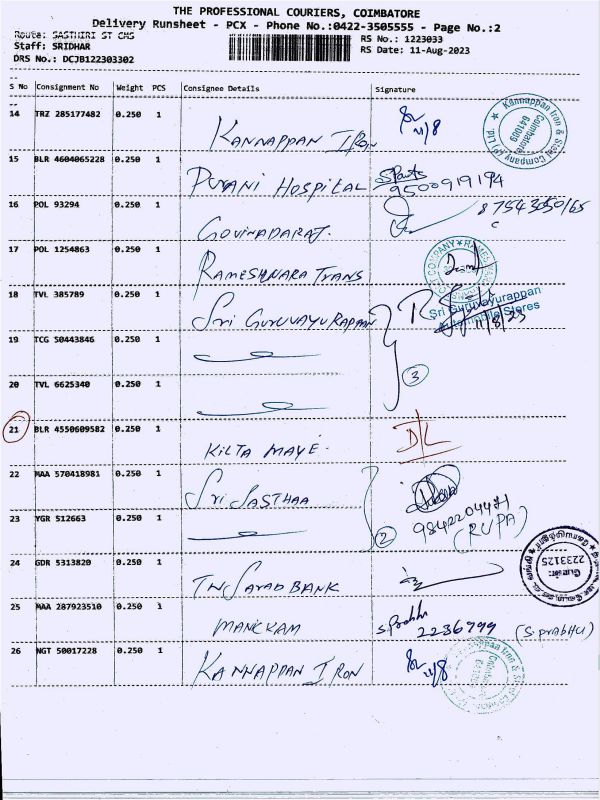 THE PROFESSIONAL COURIERS, COIMBATORE
Delivery Runsheet - PCX - Phone No.:0422-3505555 - Page No.:2
Route: SASTHIRI ST CMS
Staff: SRIDHAR
DRS No.: DCJB122303302
RS No.: 1223033
RS Date: 11-Aug-2023
S No Consignment No Weight PCS Consignee Details Signature
14 TRZ 285177482 0.250 1 KANNAPPAN IRON 11/8
Kannappan Iron & Steel Company (P) Ltd Coimbatore 641009
15 BLR 4604065228 0.250 1 PURANI HOSPITAL 9500919194
16 POL 93294 0.250 1 GOVINADARAJ.
17 POL 1254863 0.250 1 RAMESHWARA TRANS
18 TVL 385789 0.250 1 SRI GURUVAYURAPPAN
Sri Guruvayurappan
Automobile Stores
11/8/23
19 TCG 50443846 0.250 1
20 TVL 6625340 0.250 1
3
21 BLR 4550609582 0.250 1 KILTA MAYE. D/L
22 MAA 570418981 0.250 1 SRI SASTHAA
9842204471
(RUPA)
23 YGR 512663 0.250 1
2
24 GDR 5313820 0.250 1 TN SARAD BANK
போன்:
2233125
25 MAA 287923510 0.250 1 MANICKAM S. Prabhu 2236799 (S. PRABHU)
26 NGT 50017228 0.250 1 KANNAPPAN IRON 11/8
Kannappan Iron & Steel Company